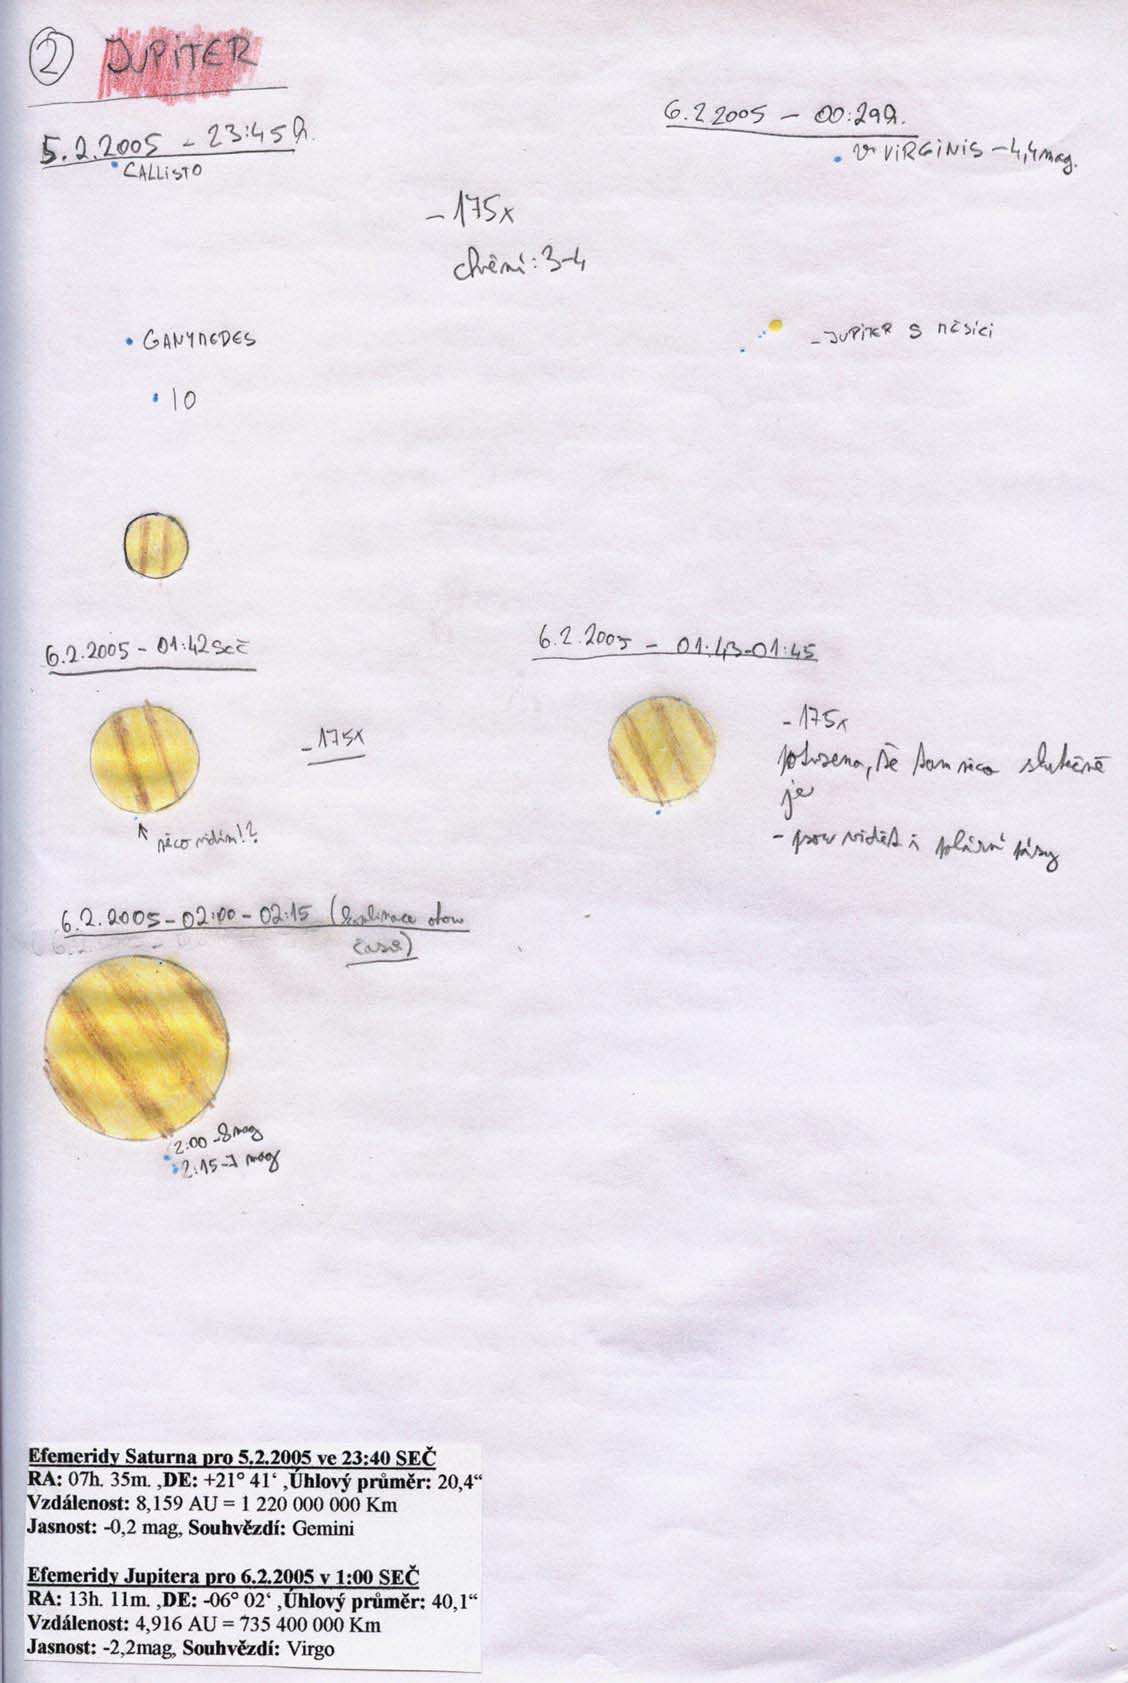 2 JUPITER
5.2.2005 - 23:45h.
CALLISTO
6.2.2005 - 00:29h.
VIRGINIS - 4,4mag.
- 175x
chvění: 3-4
GANYMEDES
IO
- JUPITER S MĚSÍCI
6.2.2005 - 01:42 SEČ
- 175x
něco vidím!?
6.2.2005 - 01:43-01:45
- 175x
potvrzeno, že tam něco skutečně
je
- jsou vidět i polární pásy
6.2.2005 - 02:00 - 02:15 (
časů)
2:00 - 8mag
2:15 - 7 mag
Efemeridy Saturna pro 5.2.2005 ve 23:40 SEČ
RA: 07h. 35m. ,DE: +21° 41‘ ,Úhlový průměr: 20,4“
Vzdálenost: 8,159 AU = 1 220 000 000 Km
Jasnost: -0,2 mag, Souhvězdí: Gemini
Efemeridy Jupitera pro 6.2.2005 v 1:00 SEČ
RA: 13h. 11m. ,DE: -06° 02‘ ,Úhlový průměr: 40,1“
Vzdálenost: 4,916 AU = 735 400 000 Km
Jasnost: -2,2mag, Souhvězdí: Virgo